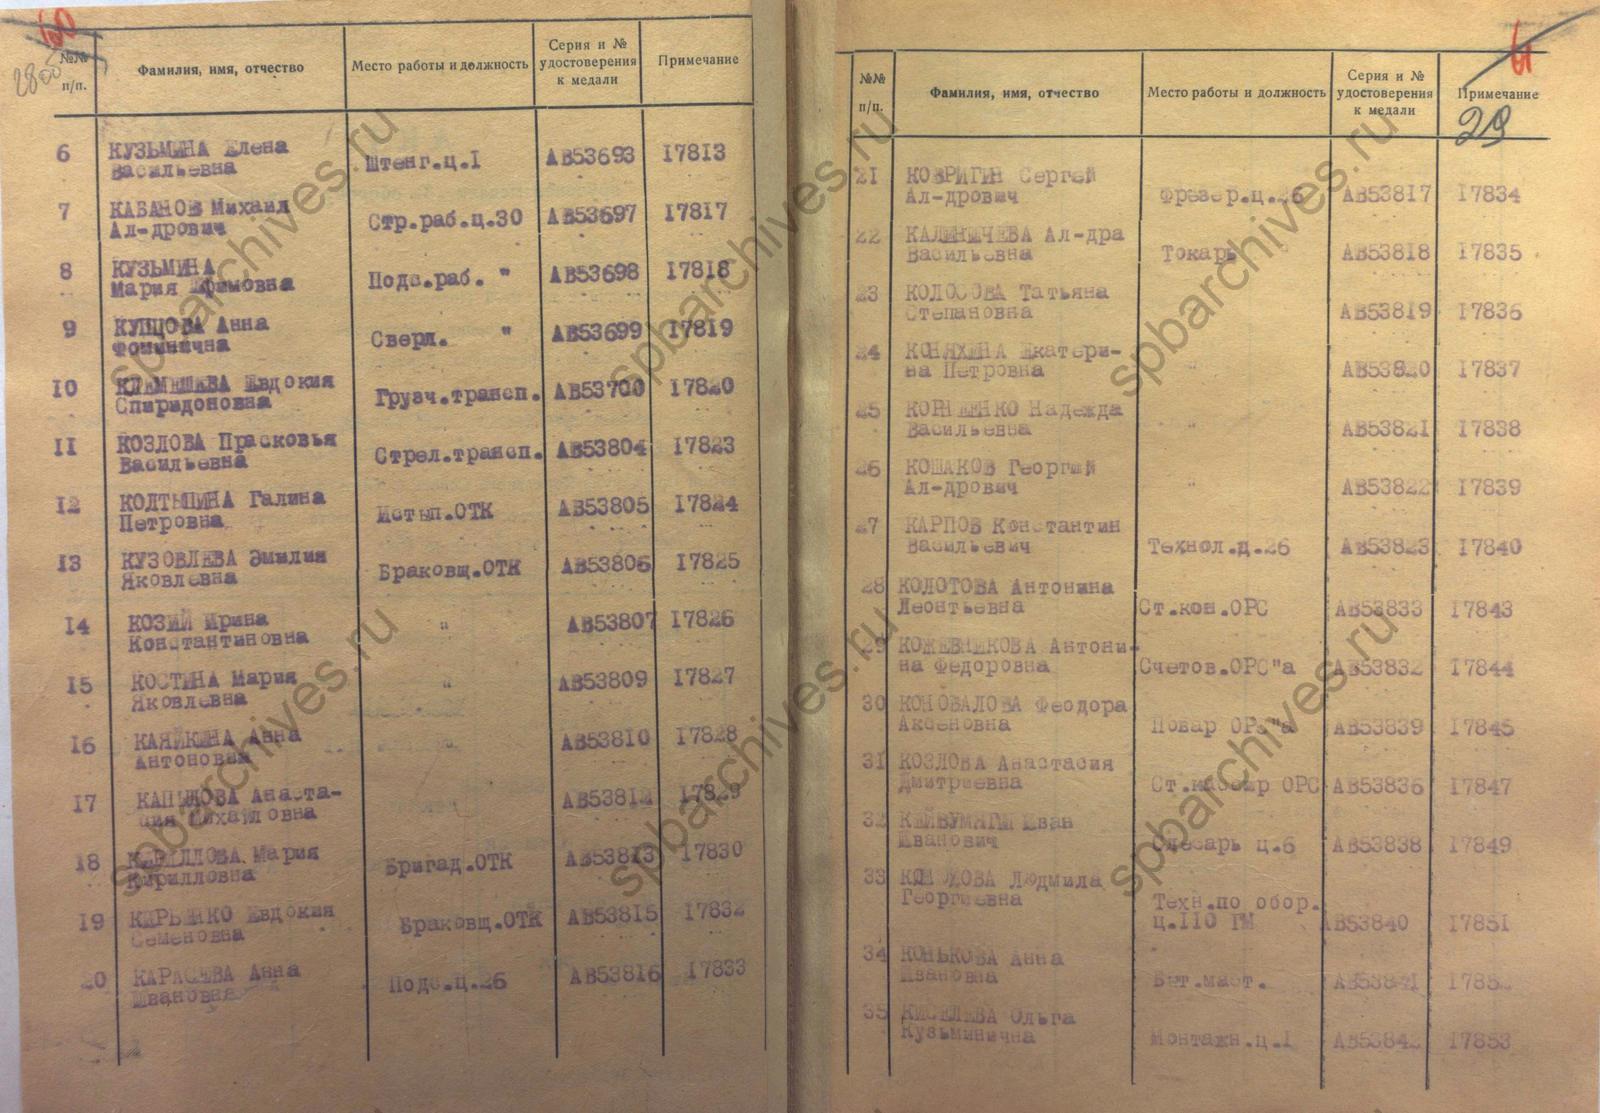 60
2800
№№ п/п. Фамилия, имя, отчество Место работы и должность Серия и № удостоверения к медали Примечание
6 КУЗЬМИНА Елена Штенг.ц.I АВ53693 I7813
Васильевна
7 КАБАНОВ Михаил Стр.раб.ц.30 АВ53697 I7817
Ал-дрович
8 КУЗЬМИНА Подс.раб. " АВ53698 I7818
Мария Ефимовна
9 КУПЦОВА Анна Сверл. " АВ53699 I7819
Фоминична
10 КЛЕМЕШЕВА Евдокия Грузч.трансп. АВ53700 I7820
Спиридоновна
11 КОЗЛОВА Прасковья Стрел.трансп. АВ53804 I7823
Васильевна
12 КОЛТЫПИНА Галина Испып.ОТК АВ53805 I7824
Петровна
13 КУЗОВЛЕВА Эмилия Браковщ.ОТК АВ53806 I7825
Яковлевна
14 КОЗИЙ Ирина " АВ53807 I7826
Константиновна
15 КОСТИНА Мария " АВ53809 I7827
Яковлевна
16 Анна " АВ53810 I7828
Антоновна
17 Анаста- " АВ53812 I7829
сия Михайловна
18 КИРИЛЛОВА Мария Бригад.ОТК АВ53813 I7830
Кирилловна
19 КИРЬЕНКО Евдокия Браковщ.ОТК АВ53815 I7832
Семеновна
20 КАРАСЕВА Анна Подс.ц.26 АВ53816 I7833
Ивановна
29
№№ п/п. Фамилия, имя, отчество Место работы и должность Серия и № удостоверения к медали Примечание
21 КОВРИГИН Сергей Фрезер.ц.26 АВ53817 I7834
Ал-дрович
22 КАЛИНИЧЕВА Ал-дра Токарь АВ53818 I7835
Васильевна
23 КОЛОСОВА Татьяна АВ53819 I7836
Степановна
24 КОНЯХИНА Екатери- " АВ53820 I7837
на Петровна
25 КОРНИЕНКО Надежда " АВ53821 I7838
Васильевна
26 КОШАКОВ Георгий " АВ53822 I7839
Ал-дрович
27 КАРПОВ Константин Технол.ц.26 АВ53823 I7840
Васильевич
28 КОЛОТОВА Антонина Ст.кон.ОРС АВ53833 I7843
Леонтьевна
29 КОЖЕВНИКОВА Антони- Счетов.ОРС"а АВ53832 I7844
на Федоровна
30 КОНОВАЛОВА Феодора Повар ОРС"а АВ53839 I7845
Аксеновна
31 КОЗЛОВА Анастасия Ст.кассир ОРС АВ53836 I7847
Дмитриевна
32 Иван Слесарь ц.6 АВ53838 I7849
Иванович
33 Людмила Техн.по обор. ц.110 ГМ АВ53840 I7851
Георгиевна
34 КОНЬКОВА Анна АВ53841
Ивановна
35 КИСЕЛЕВА Ольга Монтажн.ц.I АВ53842 I7853
Кузьминична
spbarchives.ru
spbarchives.ru
spbarchives.ru
spbarchives.ru
spbarchives.ru
spbarchives.ru